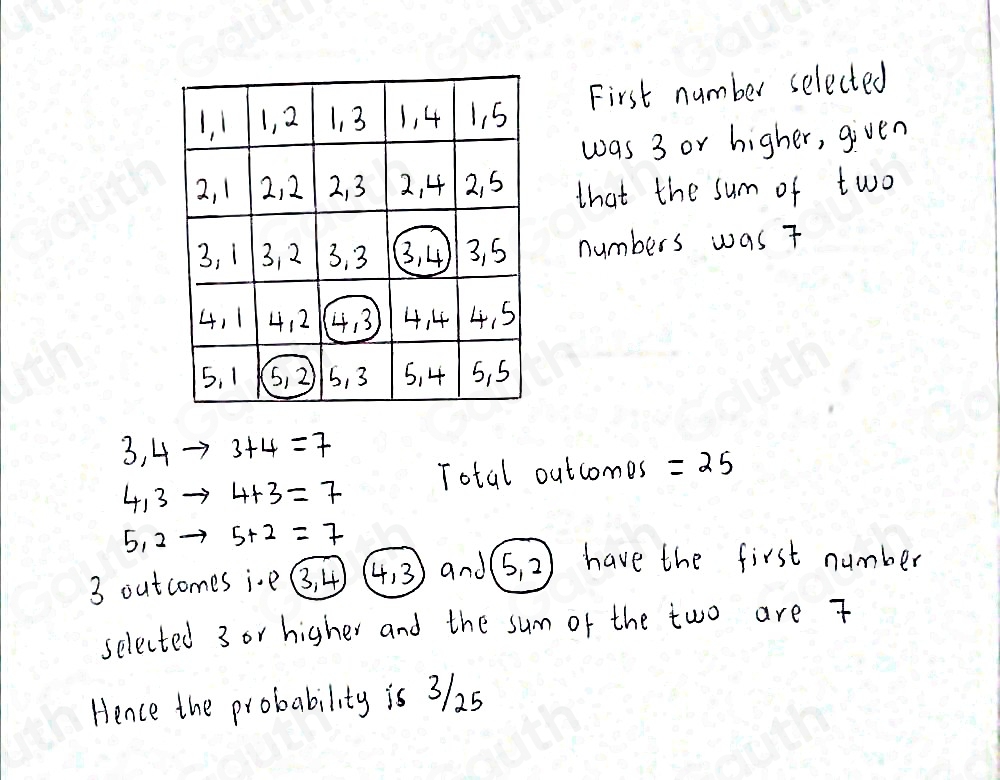 1,1 1,2 1,3 1,4 1,5
2,1 2,2 2,3 2,4 2,5
3,1 3,2 3,3 3,4 3,5
4,1 4,2 4,3 4,4 4,5
5,1 5,2 5,3 5,4 5,5
First number selected
was 3 or higher, given
that the sum of two
numbers was 7
3,4 → 3+4 = 7
4,3 → 4+3 = 7
5,2 → 5+2 = 7
Total outcomes = 25
3 outcomes i.e 3,4 4,3 and 5,2 have the first number
selected 3 or higher and the sum of the two are 7
Hence the probability is 3/25
Gauth